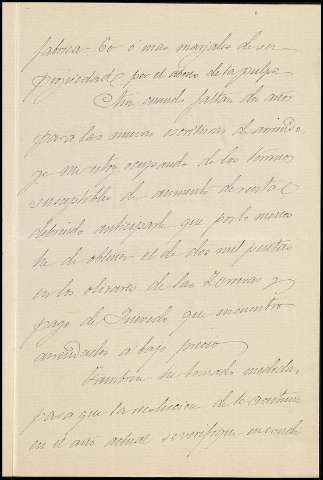 fabrica 60 ó mas marjales de su
propiedad, por el abono de la pulpa
Aun cuando faltan dos años
para las nuevas escrituras de arriendo,
ya me estoy ocupando de los terrenos
susceptibles de aumento de renta,
debiendo anticiparle que por lo menos
he de obtener el de dos mil pesetas
en los olivares de las y
pago de Quevedo que encuentro
arrendados a bajo precio
Tambien he tomado medidas
para que la recoleccion de la aceituna
en el año actual se verifique en